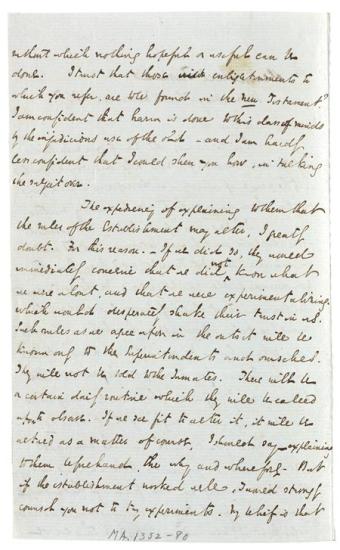 without which nothing hopeful or useful can be
done. I trust that those enlightenments to
which you refer, are to be found in the New Testament?
I am confident that harm is done to this class of minds
by the injudicious use of the Old - and I am hardly
less confident that I could shew you how, in talking
the subject over.
The expediency of explaining to them that
the rules of the Establishment may alter, I greatly
doubt. For this reason. - If we did so, they would
immediately conceive that we did not know what
we were about, and that we were experimentalizing.
which would desperately shake their trust in us.
Such rules as we agree upon in the outset will be
known only to the Superintendents and ourselves.
They will not be told to the Inmates. There will be
a certain daily routine which they will be called
upon to observe. If we see fit to alter it, it will be
altered as a matter of course, I should say - explaining
to them, beforehand, the why and wherefore. But
if the establishment worked well, I would strongly
counsel you not to try experiments. My belief is that
MA 1352-80